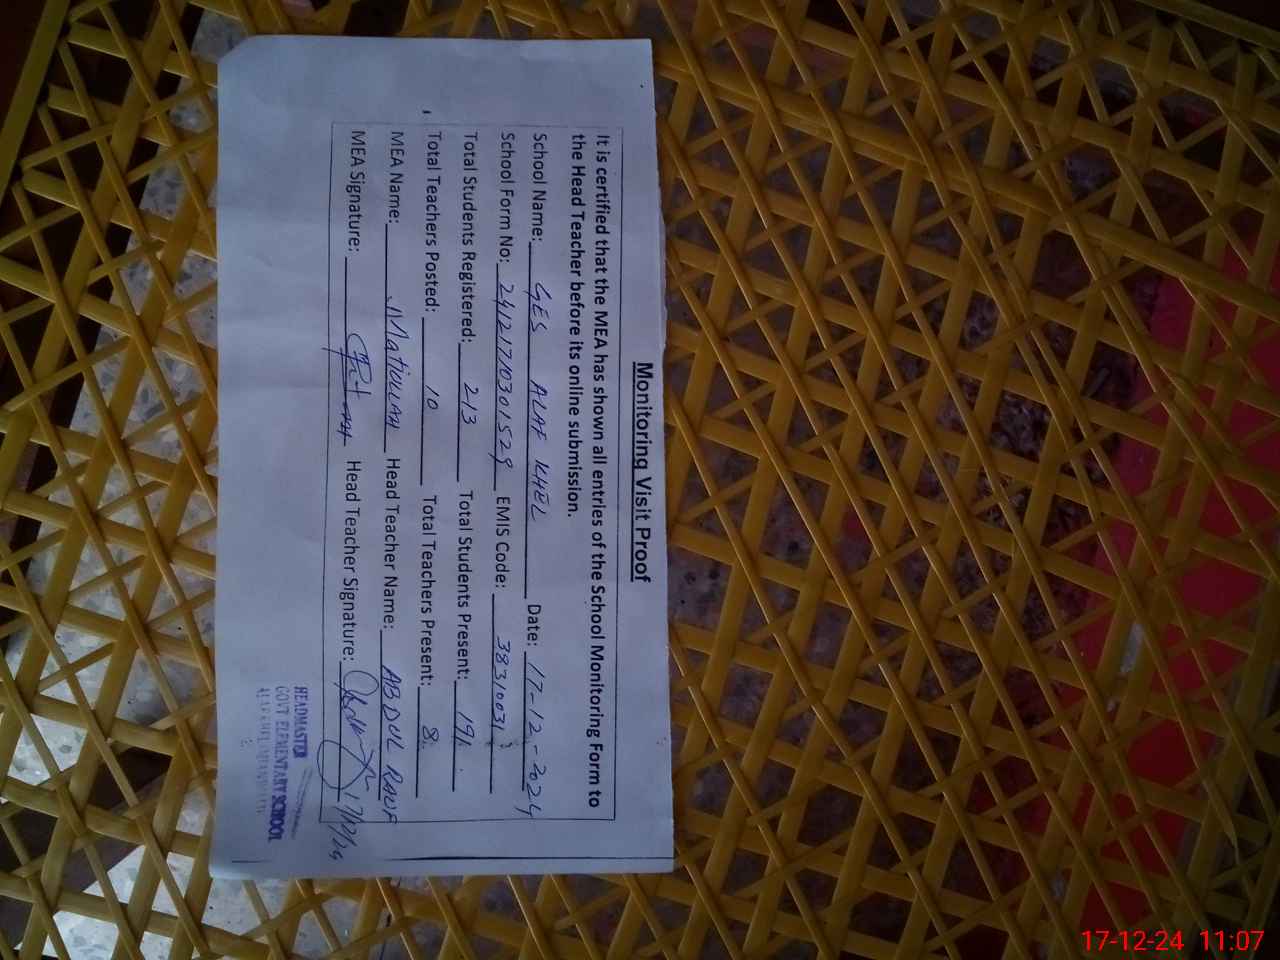 Monitoring Visit Proof
It is certified that the MEA has shown all entries of the School Monitoring Form to
the Head Teacher before its online submission.
School Name: GES ALAF KHEL Date: 17-12-2024
School Form No: 2412170301529 EMIS Code: 38310031
Total Students Registered: 213 Total Students Present: 191
Total Teachers Posted: 10 Total Teachers Present: 8
MEA Name: Matiullah Head Teacher Name: ABDUL RAUF
MEA Signature: Head Teacher Signature: 17/12/24
HEADMASTER
GOVT ELEMENTARY SCHOOL
17-12-24 11:07